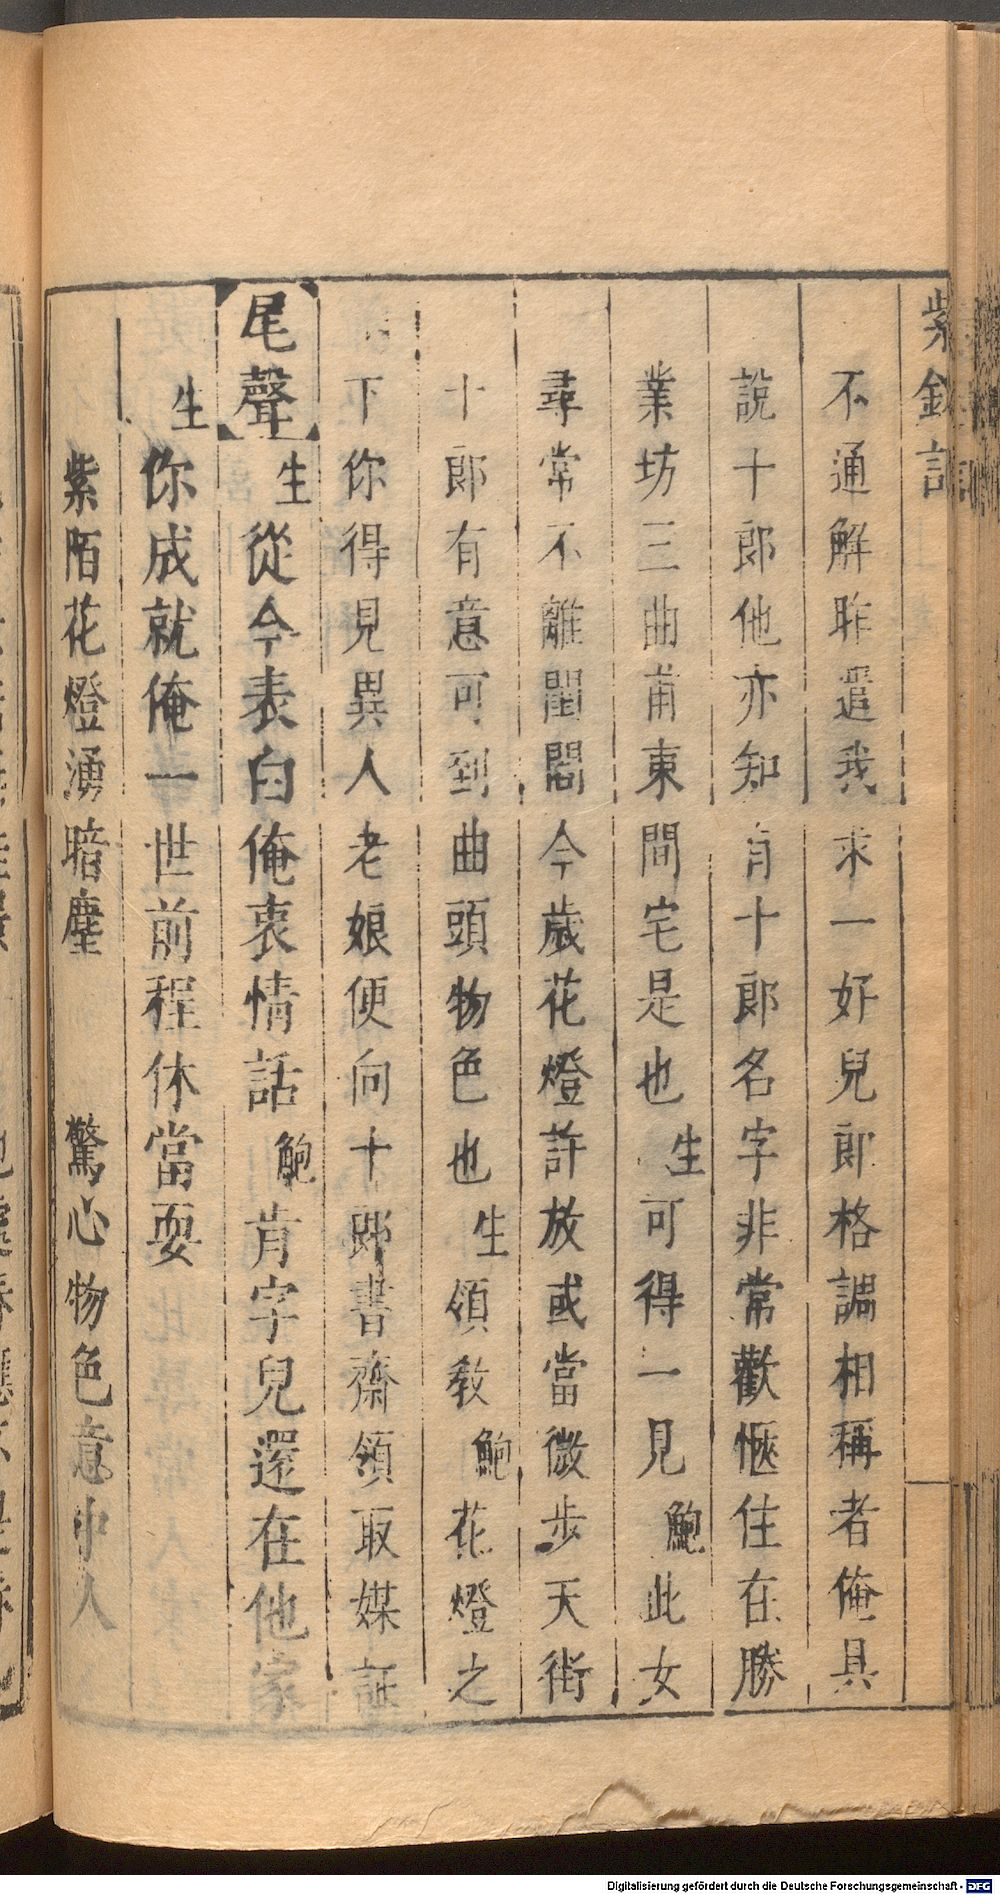 紫釵記
不通解昨遣我求一好兒郎格調相稱者俺具
說十郎他亦知有十郎名字非常歡愜住在勝
業坊三曲甫東間宅是也生可得一見鮑此女
尋常不離閨閣今歲花燈許放或當微步天街
十郎有意可到曲頭物色也生領教鮑花燈之
下你得見異人老娘便向十郎書齋領取媒証
尾聲生從今表白俺衷情話鮑肯字兒還在他家
生你成就俺一世前程休當耍
紫陌花燈湧暗塵 驚心物色意中人
Digitalisierung gefördert durch die Deutsche Forschungsgemeinschaft - DFG